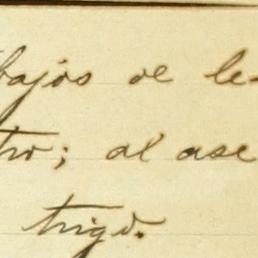 bajos de le-
tro; al ase
trigo.